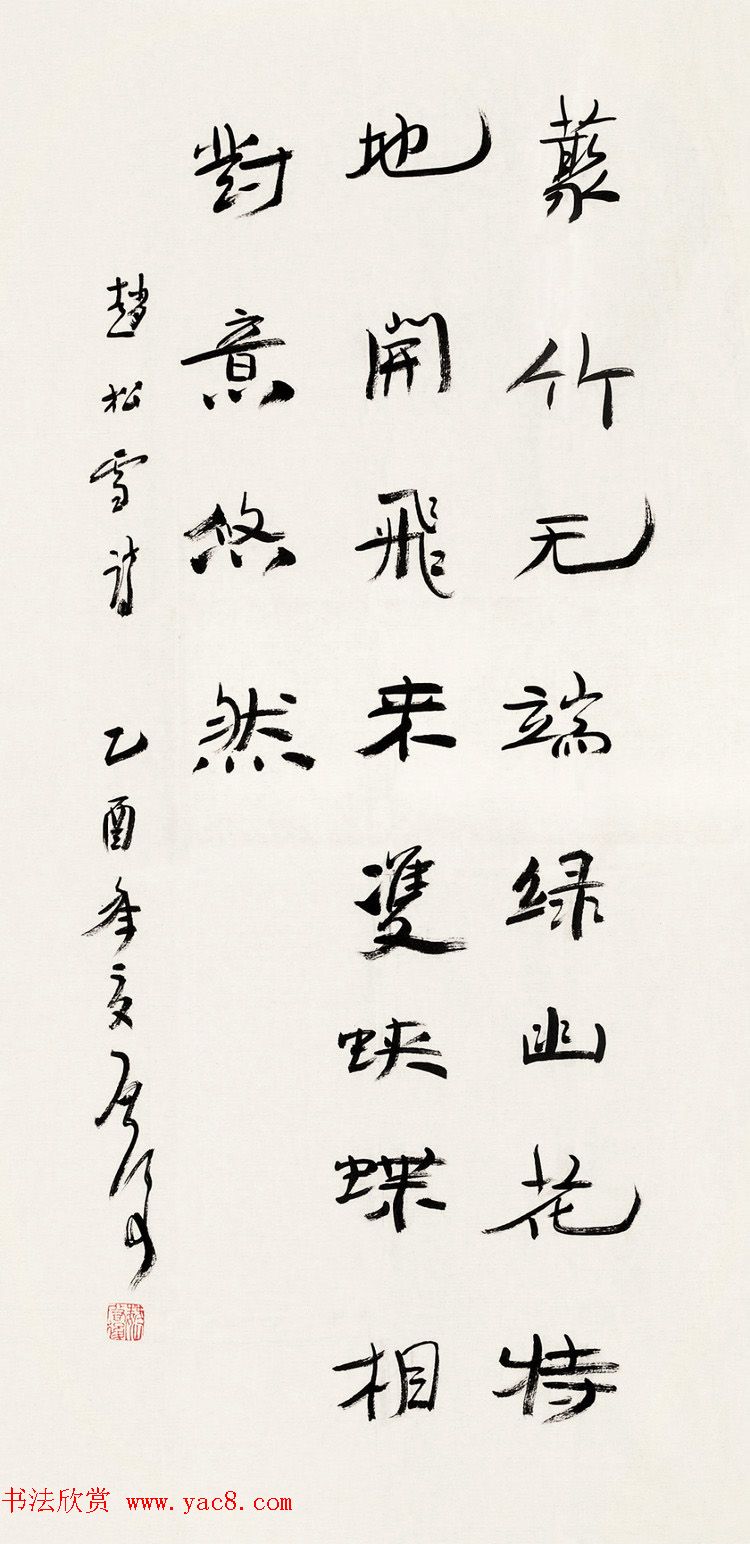 藂竹无端绿幽花特
地開飛来雙蛱蝶相
對意悠然
趙松雪詩 乙酉年夏
书法欣赏 www.yac8.com